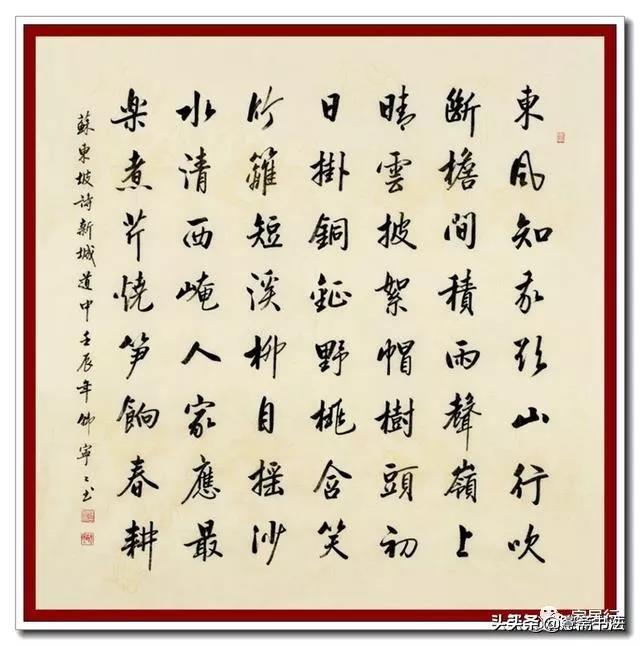 東風知我欲山行吹
斷檐間積雨聲嶺上
晴雲披絮帽樹頭初
日掛銅鉦野桃含笑
竹籬短溪柳自摇沙
水清西崦人家應最
楽煮芹燒笋餉春耕
蘇東坡詩新城道中壬辰年寧々书
头条@斋书法